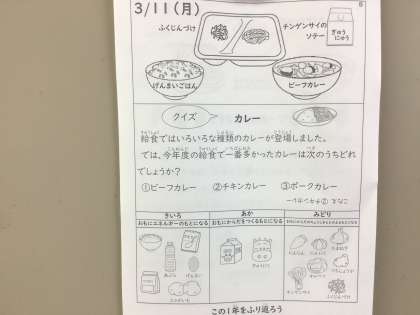 3/11(月)
ふくじんづけ
チンゲンサイの
ソテー
ぎゅう
にゅう
げんまいごはん
ビーフカレー
クイズ
カレー
給食ではいろいろな種類のカレーが登場しました。
では、今年度の給食で一番多かったカレーは次のうちどれ
でしょうか?
①ビーフカレー ②チキンカレー ③ポークカレー
きいろ
おもにエネルギーのもとになる
あぶら
げんまい
じゃがいも
あか
おもにからだをつくるもとになる
ぎゅうにく
みどり
にんじん
たまねぎ
チンゲンサイ
キャベツ
ふくじんづけ
この1年をふり返ろう